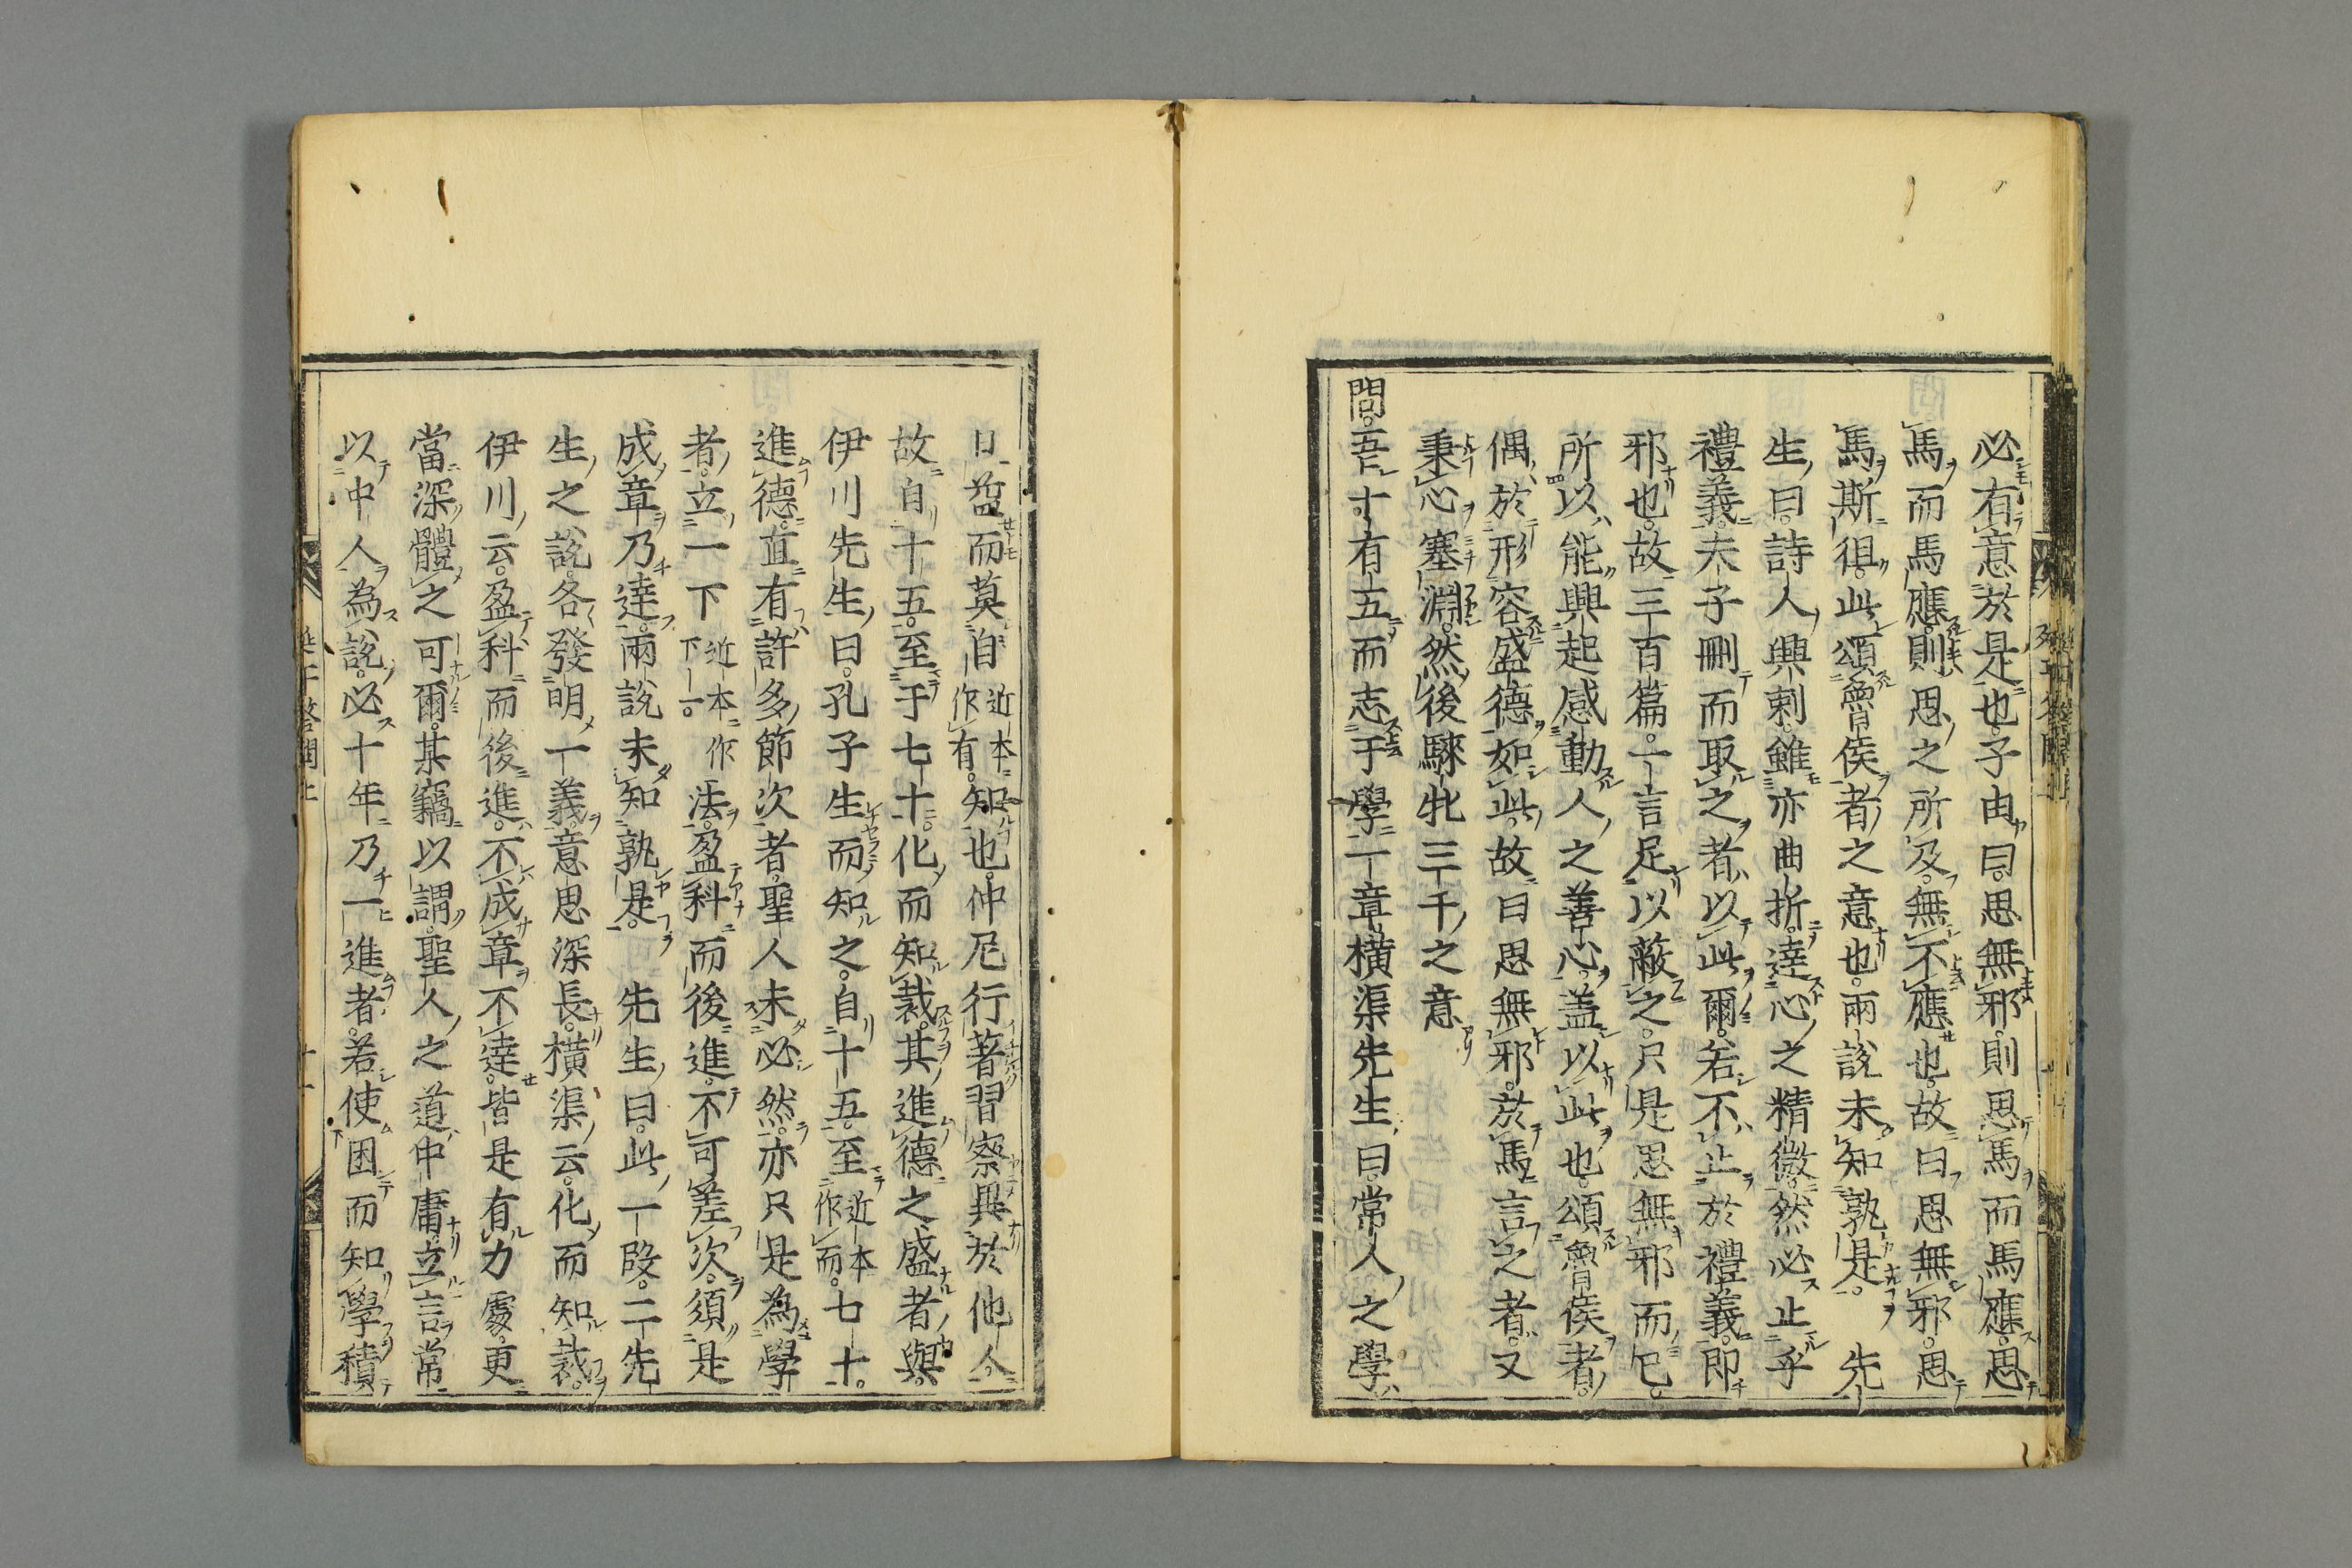 必有意於是也子由曰思無邪則思馬而馬應思
馬而馬應則思之所及無不應也故曰思無邪思
馬斯徂此頌魯侯者之意也兩說未知孰是 先
生曰詩人興刺雖亦曲折達心之精微然必止乎
禮義夫子刪而取之者以此爾若不止於禮義即
邪也故三百篇一言足以蔽之只是思無邪而已
所以能興起感動人之善心蓋以此也頌魯侯者
偶於形容盛德如此故曰思無邪於馬言之者又
秉心塞淵然後騋牝三千之意
問吾十有五而志于學一章橫渠先生曰常人之學
日益而莫自近本作有知也仲尼行著習察異於他人
故自十五至于七十化而知裁其進德之盛者與
伊川先生曰孔子生而知之自十五至近本作而七十
進德直有許多節次者聖人未必然亦只是為學
者立一下近本作下一法盈科而後進不可差次須是
成章乃達兩說未知孰是 先生曰此一段二先
生之說各發明一義意思深長橫渠云化而知裁
伊川云盈科而後進不成章不達皆是有力處更
當深體之可爾某竊以謂聖人之道中庸立言常
以中人為說必十年乃一進者若使困而知學積